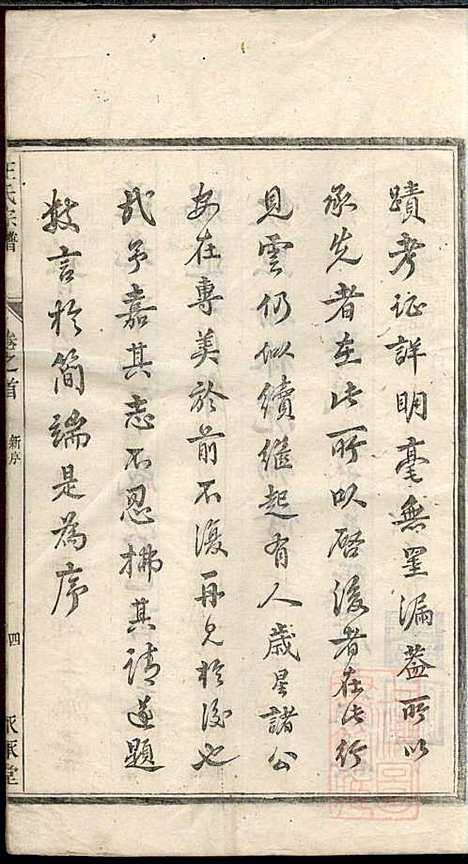 蹟考证詳明毫無罣漏蓋所以
承先者在此而所以啓後者在此行
見雲仍似續繼起有人歲星諸公
安在專美於前不復再見於後也
哉予嘉其志不忍拂其請遂題
数言於簡端是為序
王氏宗譜
卷之首
新序
四
永承堂